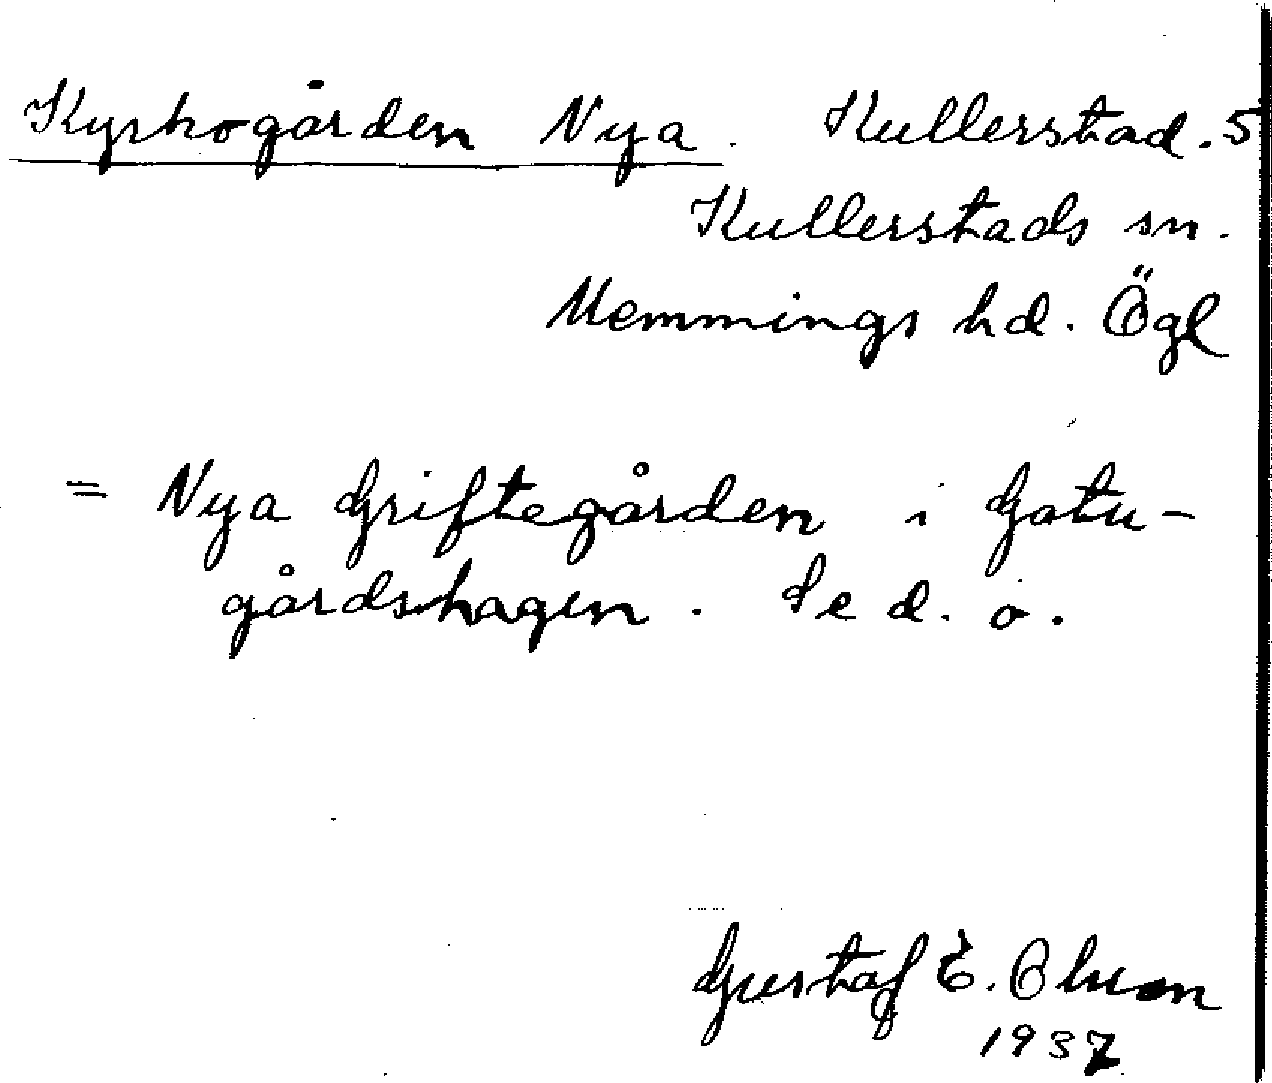 Kyrkogården Nya. Kullerstad. 5
Kullerstads sn.
Memmings hd. Ögl
= Nya Griftegården i Gatu-
gårdshagen. Se d. o.
Gustaf E. Olsson
1937